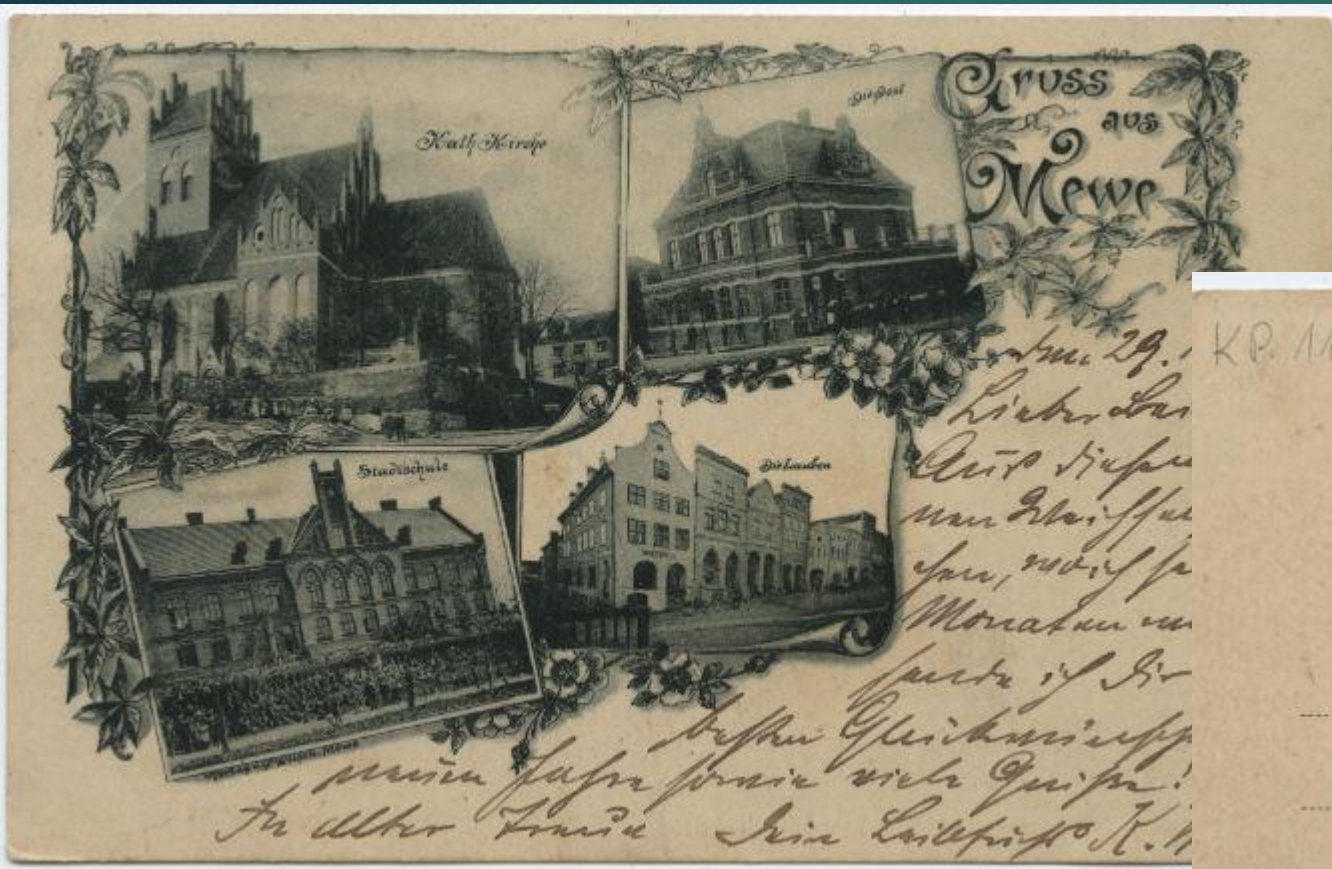 Gruss
aus
Mewe
Kath. Kirche
Die Post
Stadtschule
Die Lauben
den 29.
Lieber
Aus diesem
Monaten
sende ich Dir
besten Glückwünsche
neuen Jahre sowie viele Grüße!
In alter Treue Dein Leibfuchs K.
K.P. 11